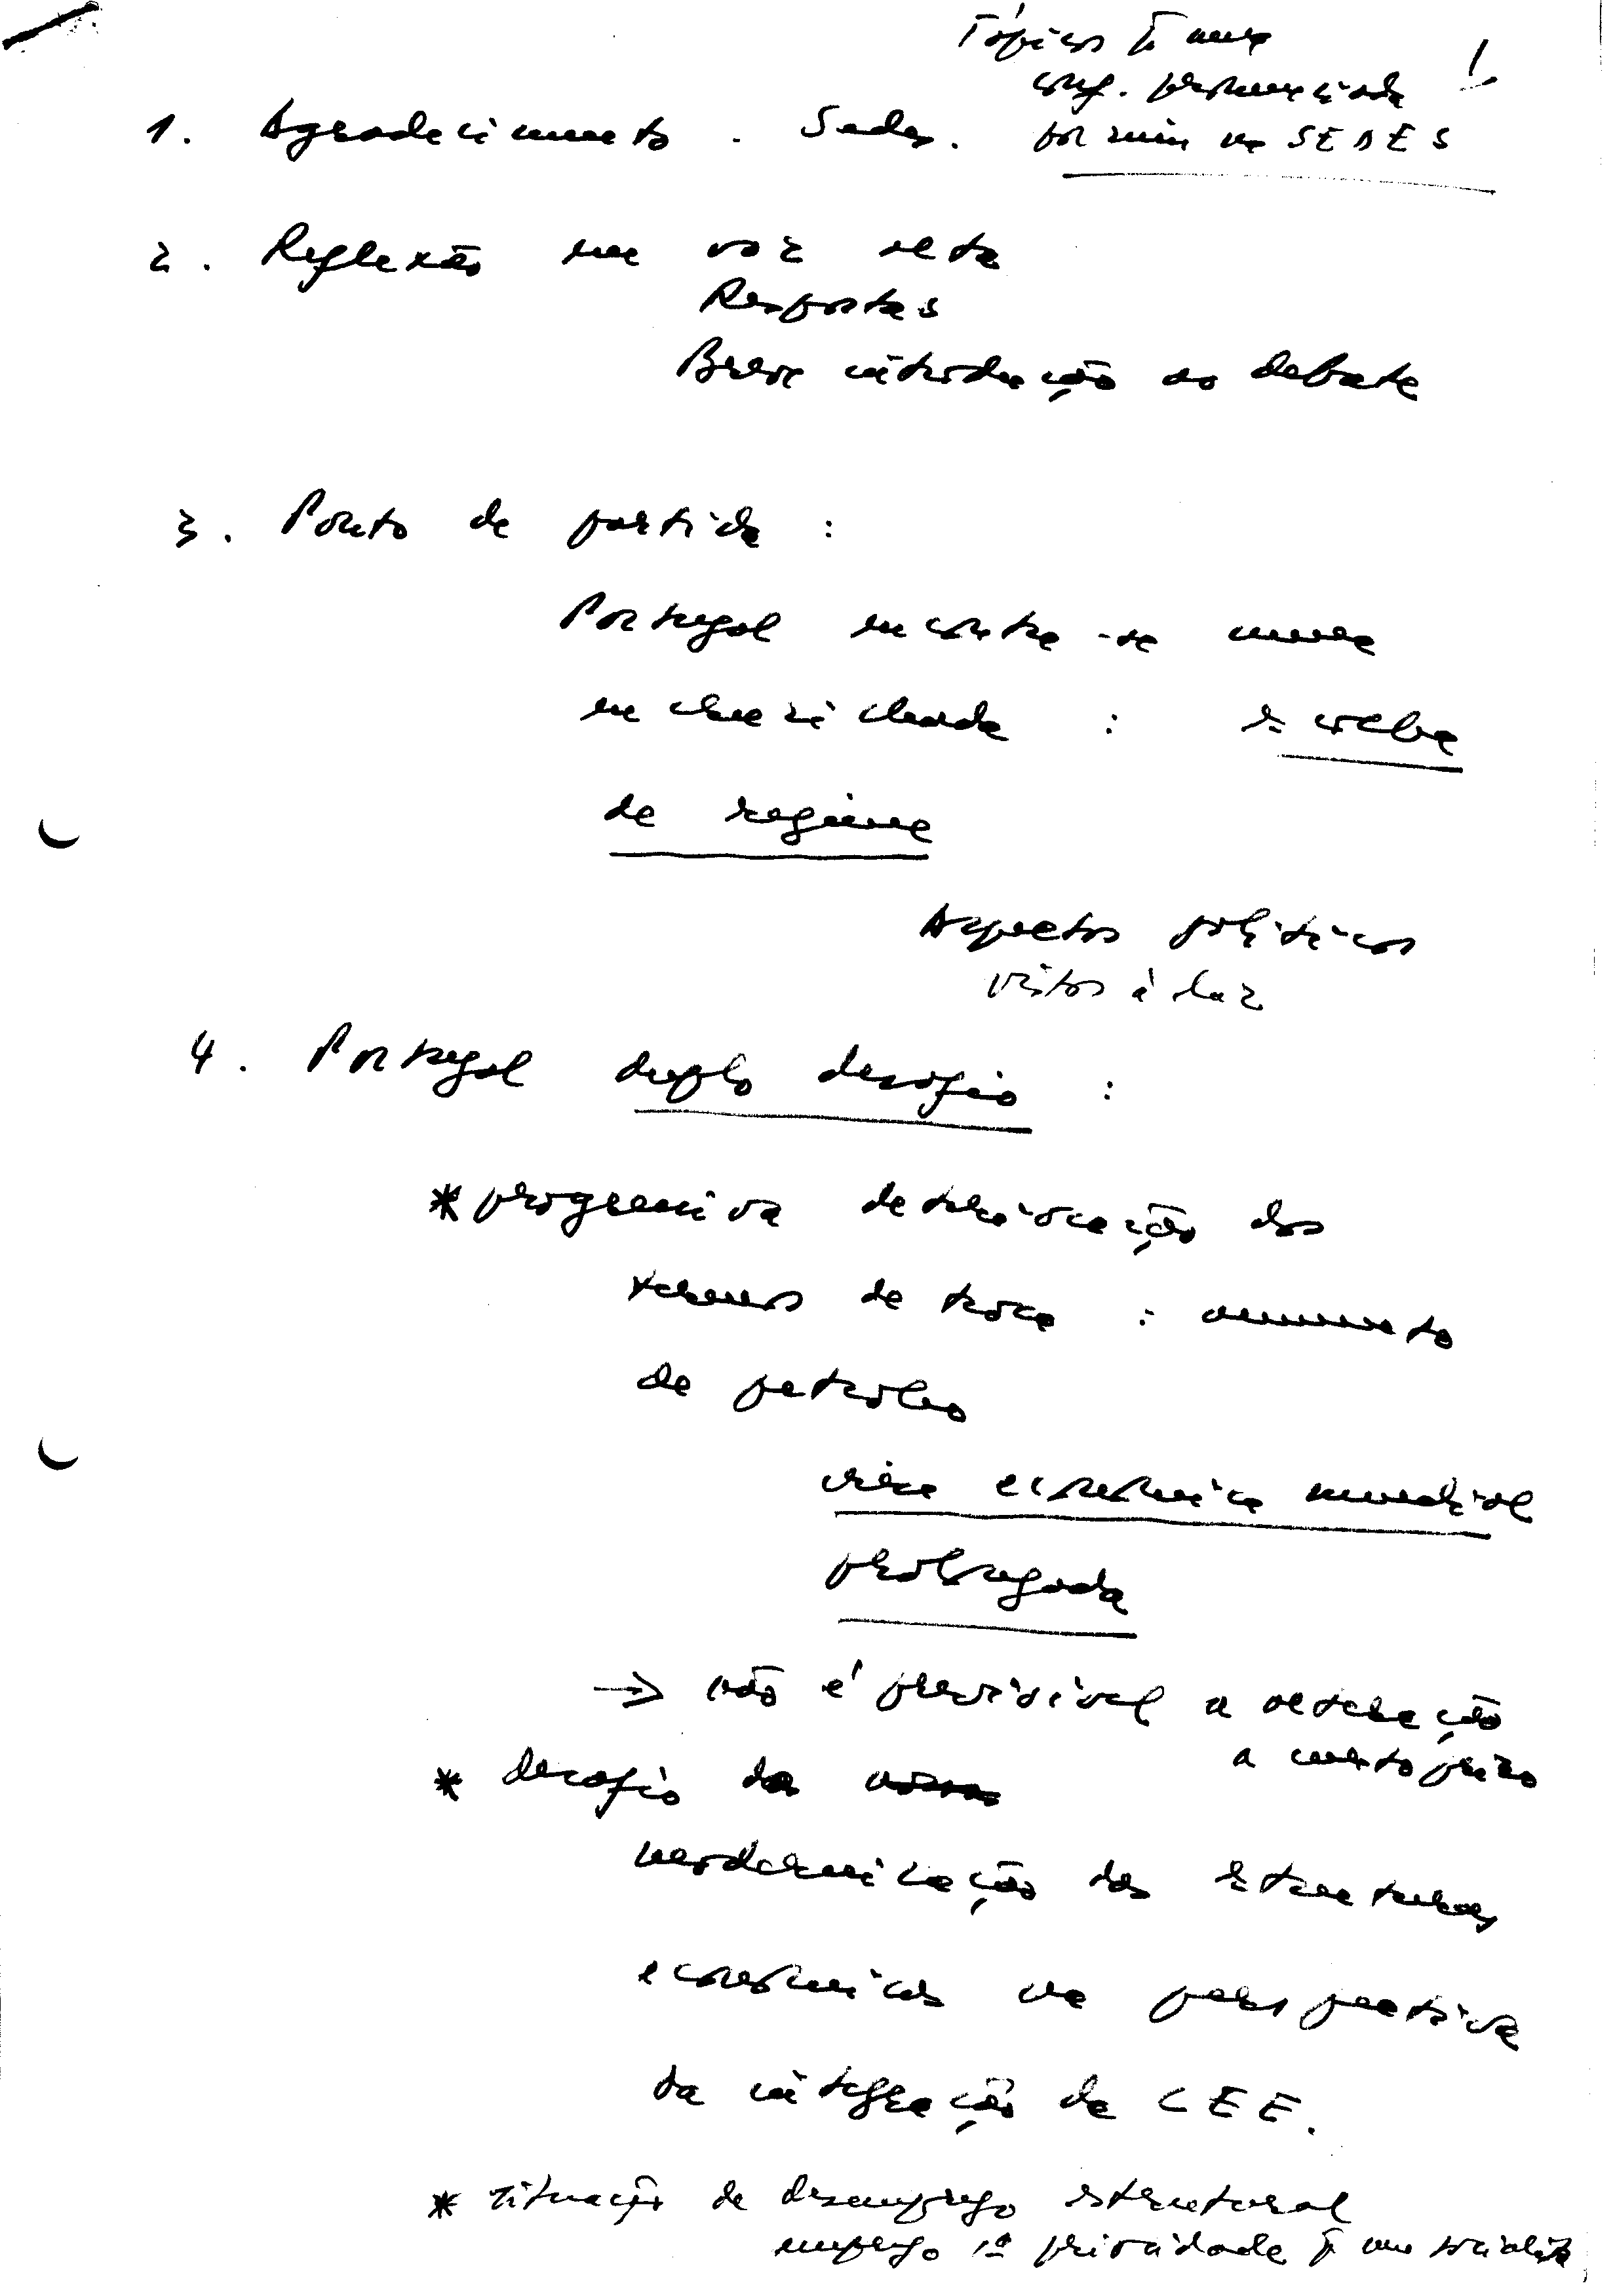 Tópicos p̄ uma
conf. pronunciada
por mim na SEDES
1. Agradecimento. Sedes.
2. Reflexão em voz alta
Respostas
Breve introdução ao debate
3. Ponto de partida :
Portugal encontra-se numa
encruzilhada : escolha
de regime
Aspectos políticos
vistos à luz
4. Portugal duplo desafio :
* progressiva deterioração dos
termos de troca : aumento
de petróleo
crise económica mundial
prolongada
→ não é previsível a alteração
a curto prazo
* desafio da
modernização das estruturas
económicas na perspectiva
da integração da CEE.
* situação de desemprego estrutural
emprego 1ª prioridade p̄ um socialista